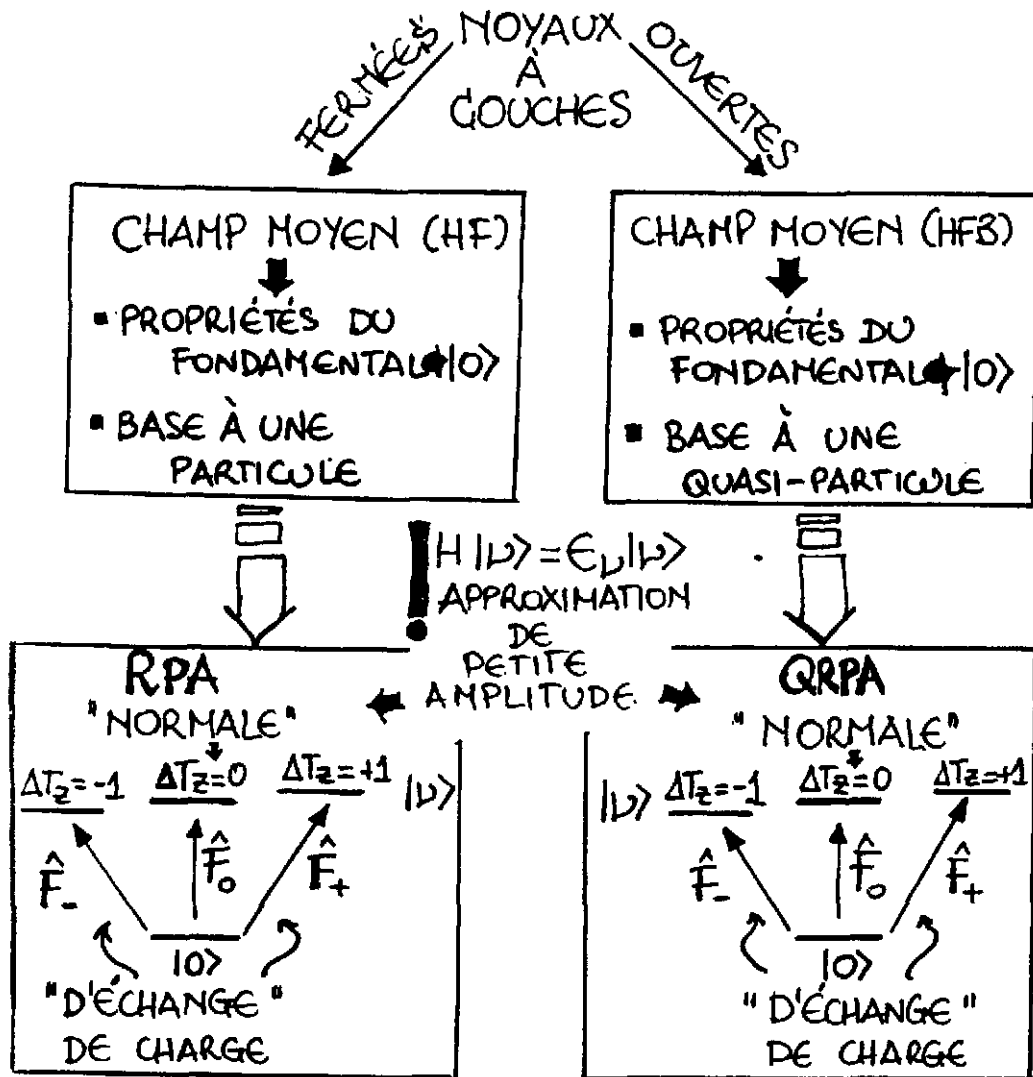 NOYAUX
À
COUCHES
FERMÉES
OUVERTES
CHAMP MOYEN (HF)
▪ PROPRIÉTÉS DU
FONDAMENTAL |0⟩
▪ BASE À UNE
PARTICULE
CHAMP MOYEN (HFB)
▪ PROPRIÉTÉS DU
FONDAMENTAL |0⟩
▪ BASE À UNE
QUASI-PARTICULE
! H|ν⟩=Єν|ν⟩
APPROXIMATION
DE
PETITE
AMPLITUDE
RPA
"NORMALE"
ΔTz=-1 ΔTz=0 ΔTz=+1 |ν⟩
F̂₋ F̂₀ F̂₊
|0⟩
"D'ÉCHANGE"
DE CHARGE
QRPA
"NORMALE"
|ν⟩ ΔTz=-1 ΔTz=0 ΔTz=+1
F̂₋ F̂₀ F̂₊
|0⟩
"D'ÉCHANGE"
DE CHARGE